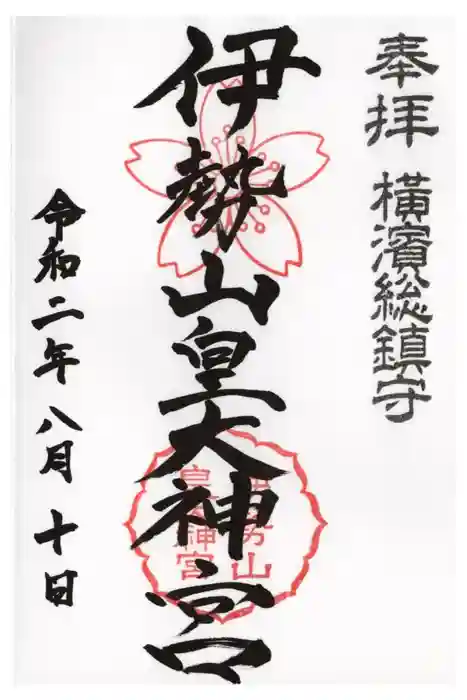 奉拝 横濱総鎮守
伊勢山皇大神宮
伊勢山
皇大神宮
令和二年八月十日